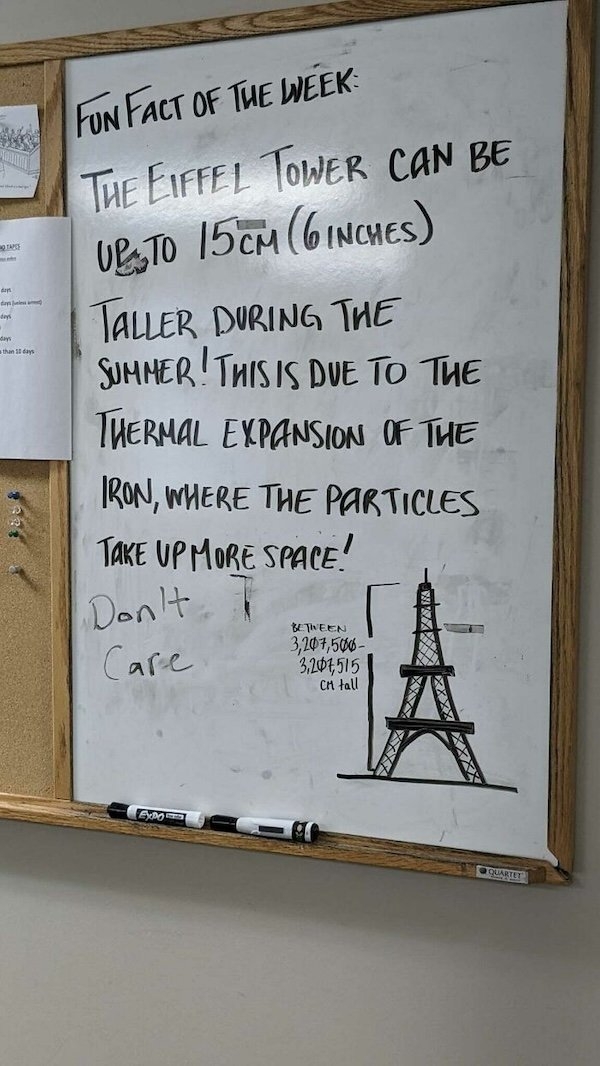 FUN FACT OF THE WEEK:
THE EIFFEL TOWER CAN BE
UP TO 15CM (6 INCHES)
TALLER DURING THE
SUMMER! THIS IS DUE TO THE
THERMAL EXPANSION OF THE
IRON, WHERE THE PARTICLES
TAKE UP MORE SPACE!
Don't
Care
BETWEEN
3,207,500-
3,207,515
CM tall
days
days
days
than 10 days
EXPO
QUARTET